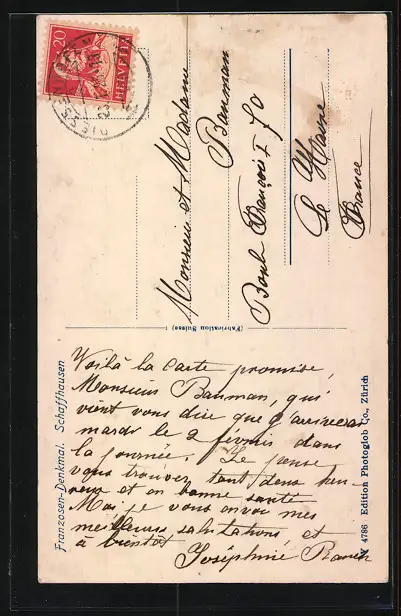 20
HELVETIA
Monsieur et Madame
Bauman
Boul. François I 70
Le Havre
France
(Fabrication Suisse)
Franzosen-Denkmal. Schaffhausen
4786 Edition Photoglob Co., Zürich
Voilà la carte promise,
Monsieur Bauman, qui
vient vous dire que j'arriverai
mardi le 2 février dans
la journée. Je pense
vous trouver tout deux heu-
reux et en bonne santé
Moi je vous envoi mes
meilleures salutations et
à bientôt Joséphine